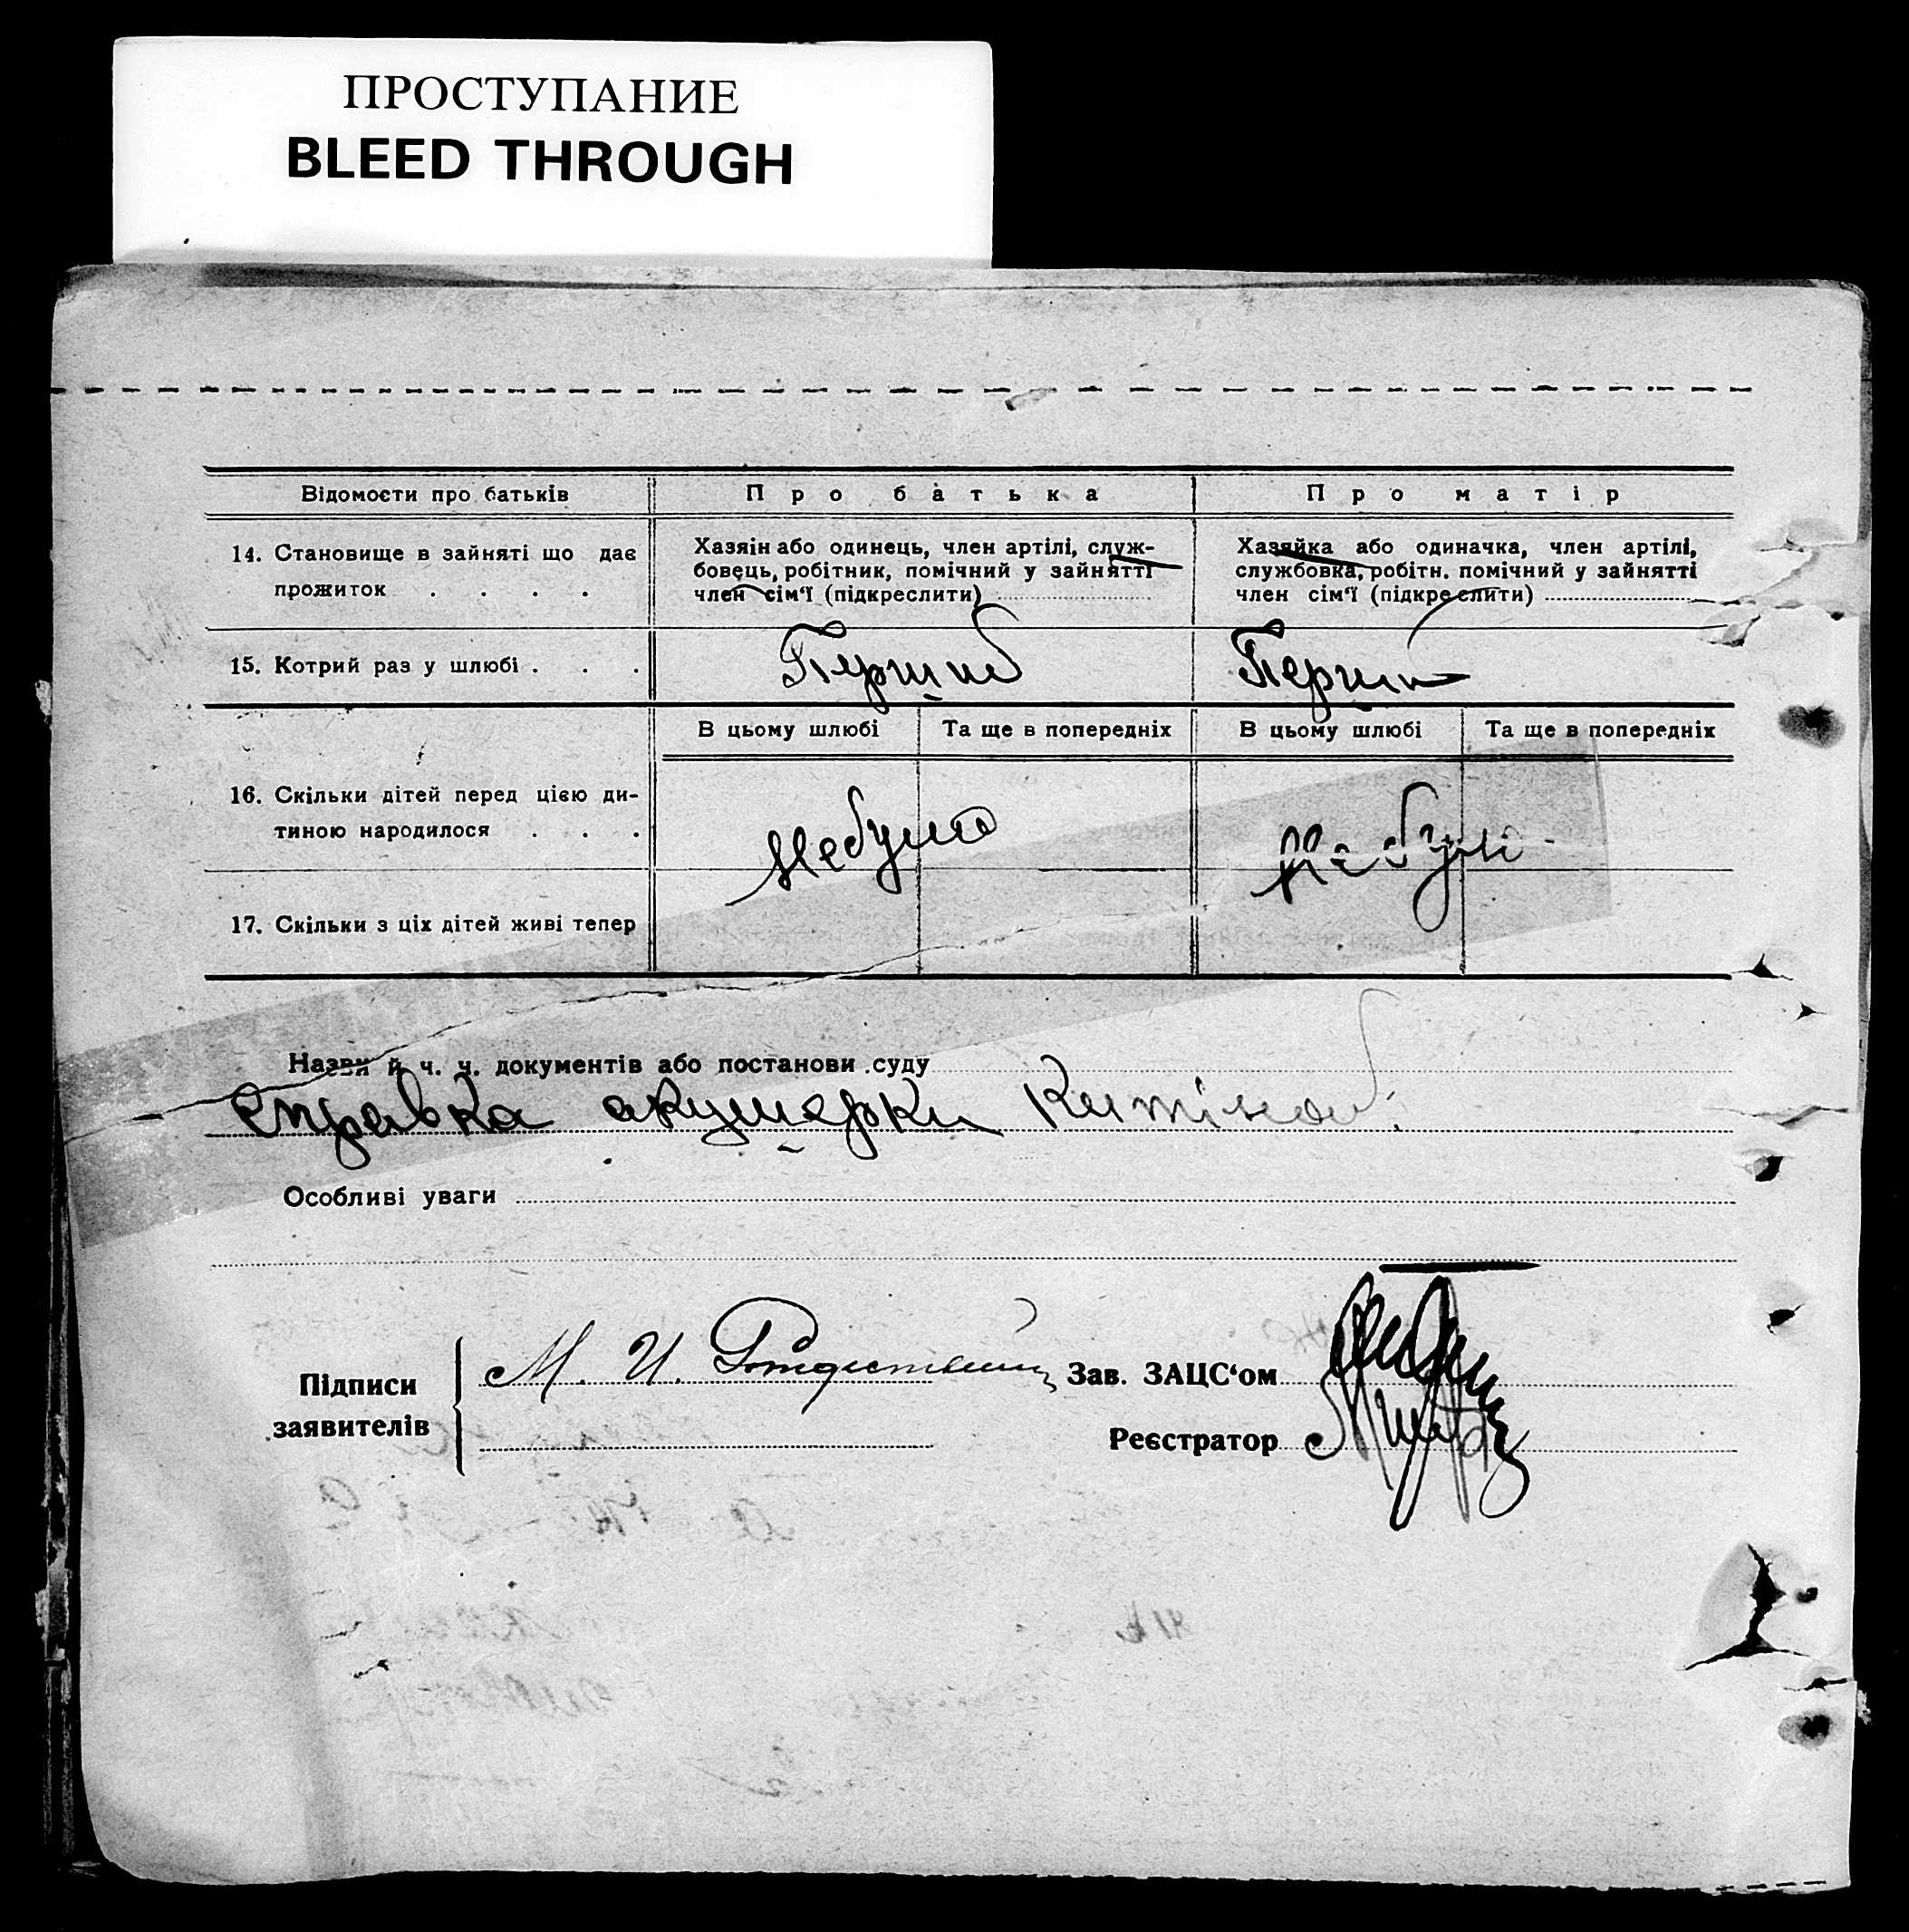 ПРОСТУПАНИЕ
BLEED THROUGH
Відомости про батьків
Про батька
Про матір
14. Становище в зайняті що дає
прожиток . . . .
Хазяїн або одинець, член артілі, служ-
бовець, робітник, помічний у зайнятті
член сім'ї (підкреслити)
Хазяйка або одиначка, член артілі,
службовка, робітн. помічний у зайнятті
член сім'ї (підкреслити)
15. Котрий раз у шлюбі . . .
Перший
Перший
В цьому шлюбі
Та ще в попередніх
В цьому шлюбі
Та ще в попередніх
16. Скільки дітей перед цією ди-
тиною народилося . . .
Небуло
Небуло
17. Скільки з ціх дітей живі тепер
Назви й ч. ч. документів або постанови суду
Справка акушерки
Особливі уваги
Підписи
заявителів
М. И.
Зав. ЗАЦС'ом
Реєстратор